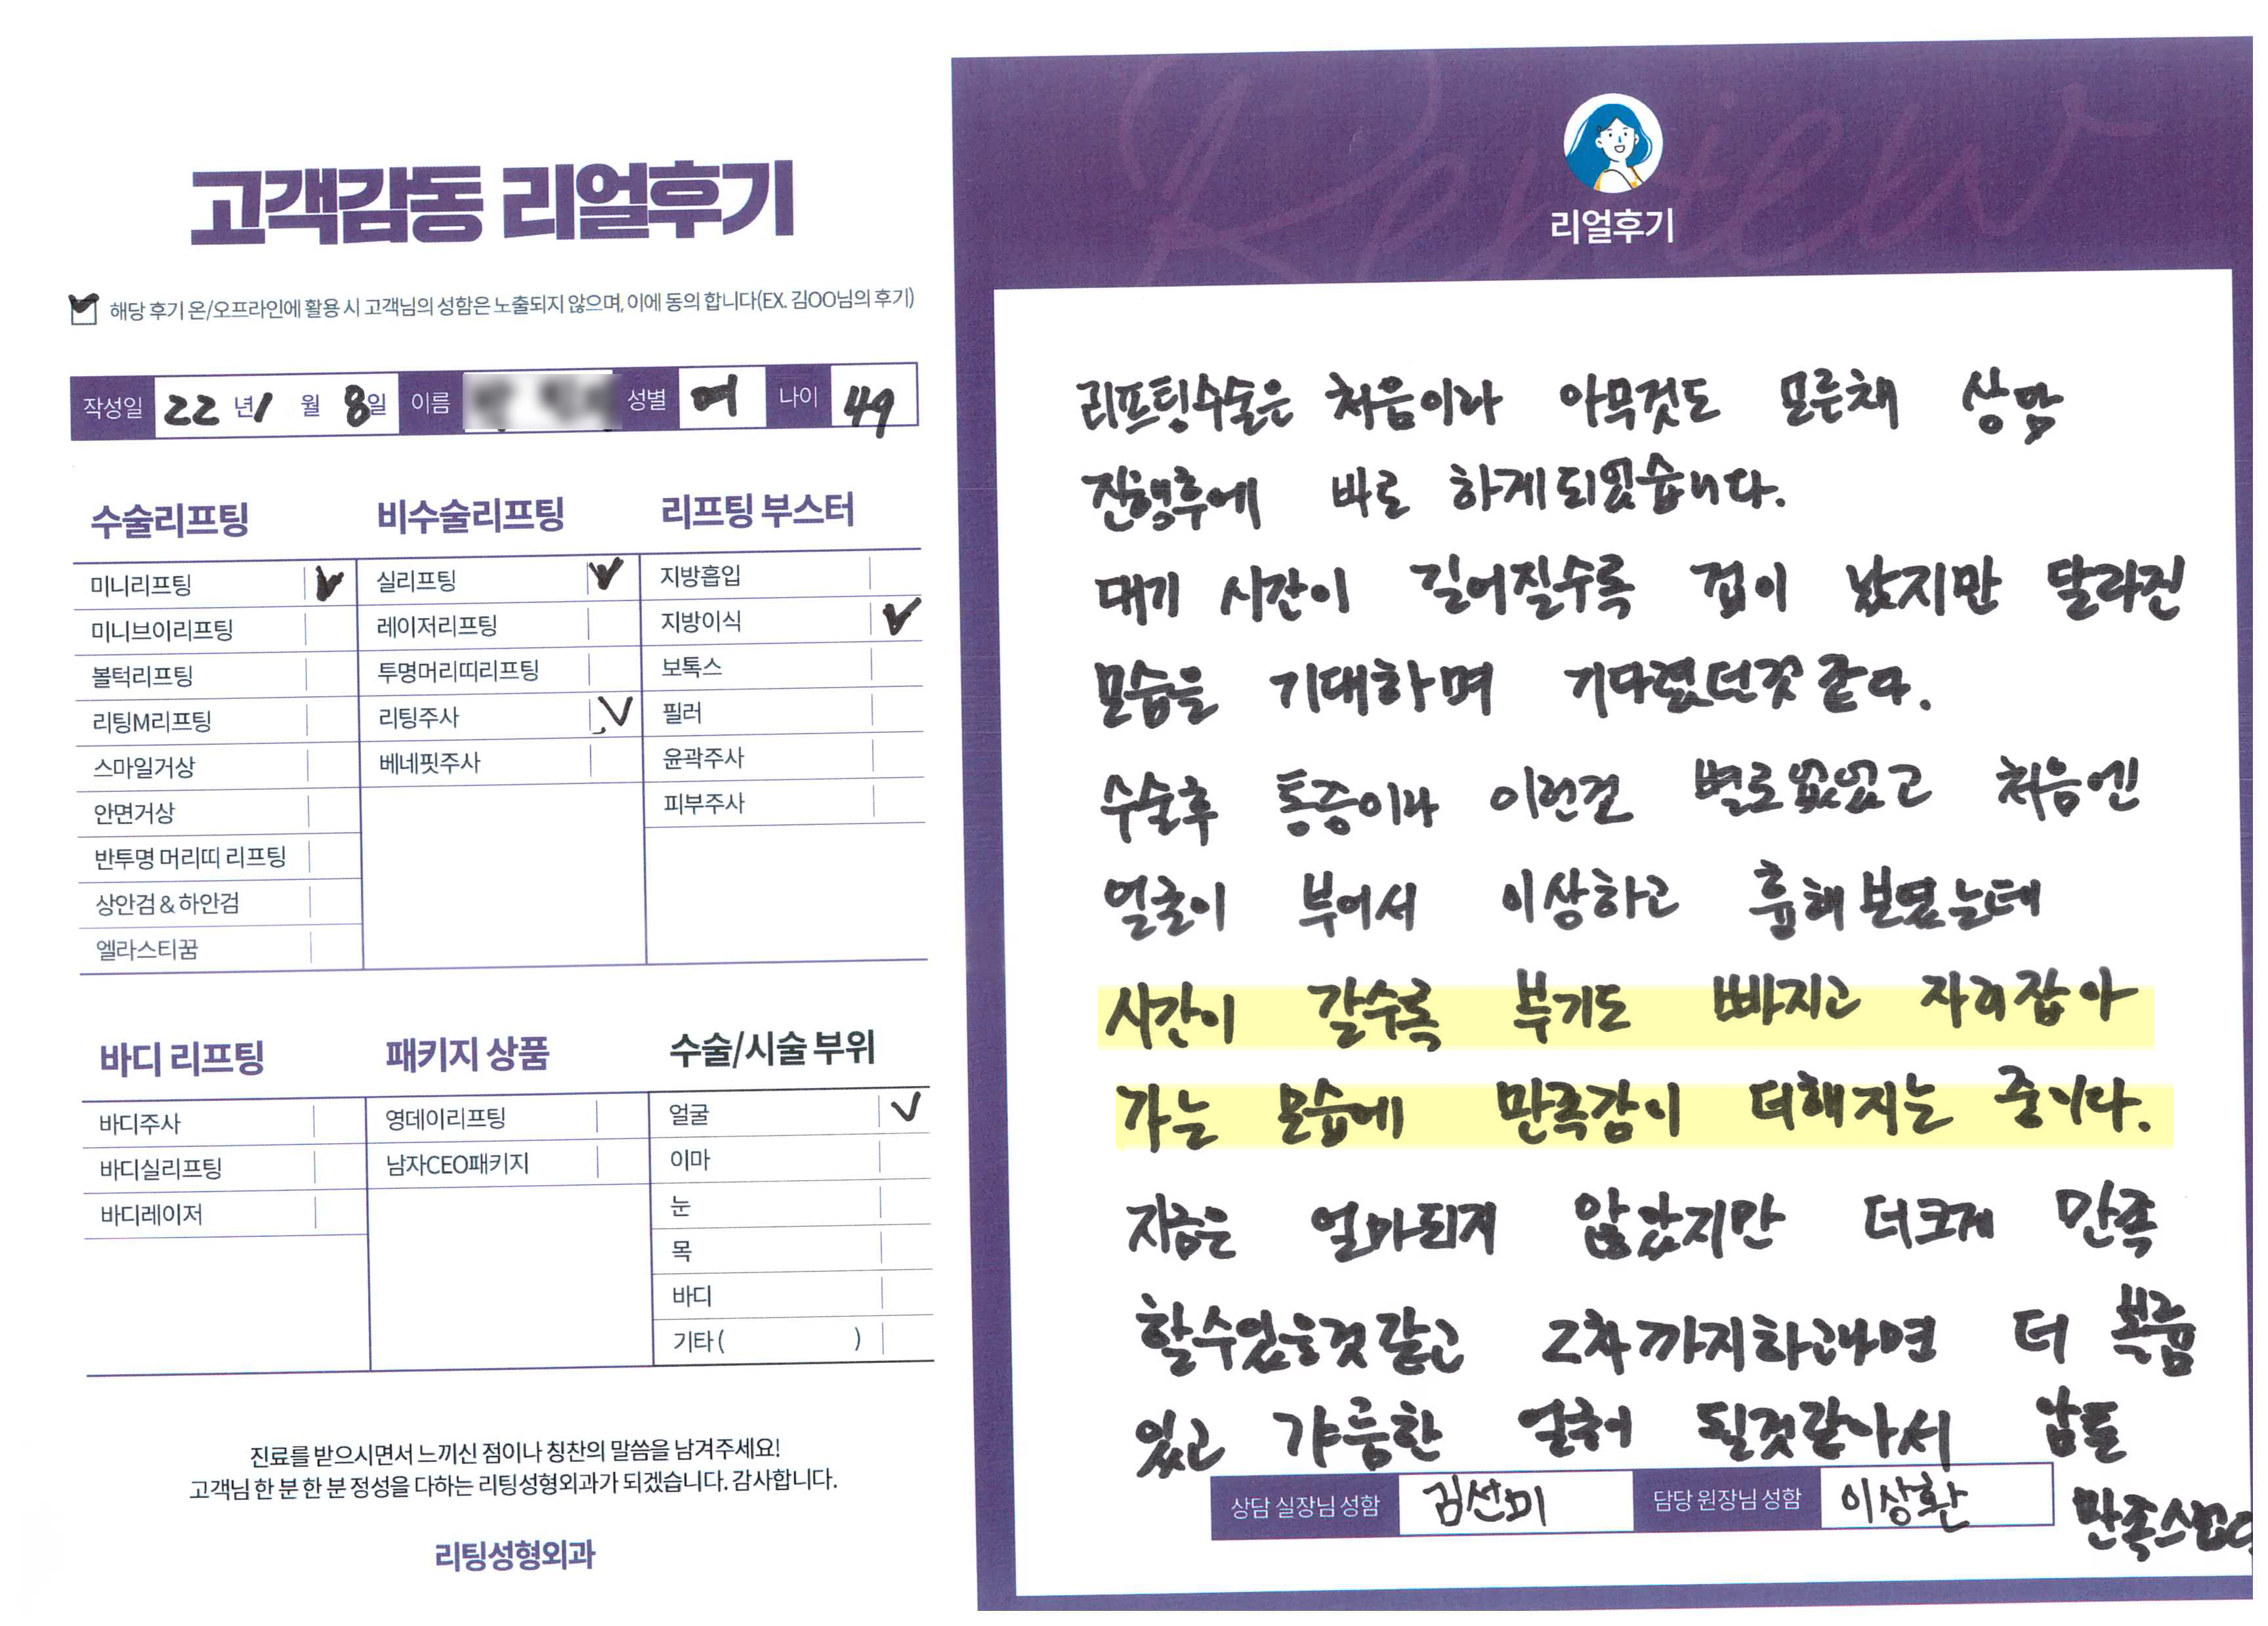 고객감동 리얼후기
해당 후기 온/오프라인에 활용 시 고객님의 성함은 노출되지 않으며, 이에 동의 합니다(EX. 김OO님의 후기)
작성일 22 년 1 월 8일 이름 성별 여 나이 49
수술리프팅
미니리프팅
미니브이리프팅
볼턱리프팅
리팅M리프팅
스마일거상
안면거상
반투명 머리띠 리프팅
상안검 & 하안검
엘라스티꿈
비수술리프팅
실리프팅
레이저리프팅
투명머리띠리프팅
리팅주사
베네핏주사
리프팅 부스터
지방흡입
지방이식
보톡스
필러
윤곽주사
피부주사
바디 리프팅
바디주사
바디실리프팅
바디레이저
패키지 상품
영데이리프팅
남자CEO패키지
수술/시술 부위
얼굴
이마
눈
목
바디
기타 ( )
진료를 받으시면서 느끼신 점이나 칭찬의 말씀을 남겨주세요!
고객님 한 분 한 분 정성을 다하는 리팅성형외과가 되겠습니다. 감사합니다.
리팅성형외과
Review
리얼후기
리프팅수술은 처음이라 아무것도 모른채 상담
진행후에 바로 하게되었습니다.
대기 시간이 길어질수록 겁이 났지만 달라진
모습을 기대하며 기다렸던것 같다.
수술후 통증이나 이런건 별로 없었고 처음엔
얼굴이 부어서 이상하고 흉해 보였는데
시간이 갈수록 붓기도 빠지고 자리잡아
가는 모습에 만족감이 더해지는 중이다.
지금은 얼마되지 않았지만 더크게 만족
할수있을것 같고 2차까지하고나면 더 볼륨
있고 갸름한 얼굴이 될것같아서
상담 실장님 성함 김선미 담당 원장님 성함 이상환